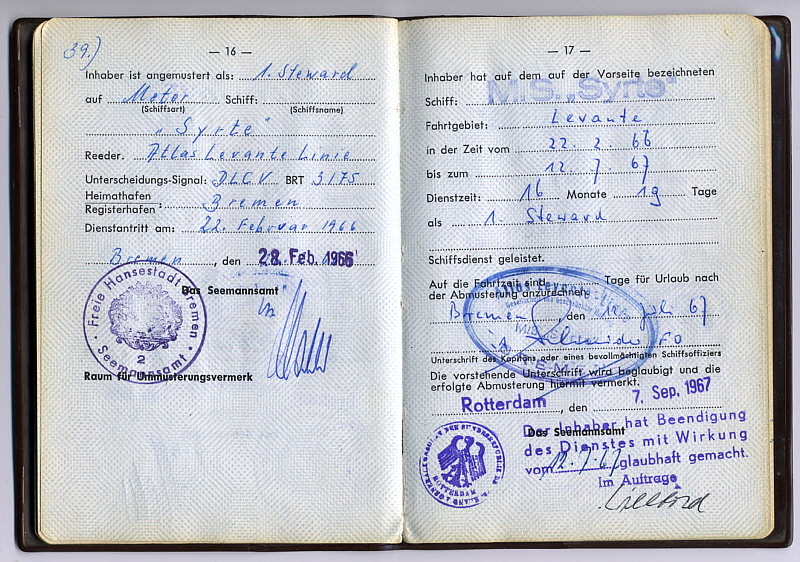 39.)
— 16 —
Inhaber ist angemustert als: 1. Steward
auf Motor Schiff:
(Schiffsart) (Schiffsname)
"Syrte"
Reeder. Atlas Levante Linie
Unterscheidungs-Signal: DLCV BRT 3175
Heimathafen
Registerhafen: Bremen
Dienstantritt am: 22. Februar 1966
Bremen, den 28. Feb. 1966
Das Seemannsamt
Freie Hansestadt Bremen
Seemannsamt
2
Raum für Ummusterungsvermerk
— 17 —
Inhaber hat auf dem auf der Vorseite bezeichneten
Schiff: M.S. „Syrte"
Fahrtgebiet: Levante
in der Zeit vom 22. 2. 66
bis zum 12. 7. 67
Dienstzeit: 16 Monate 19 Tage
als 1. Steward
Schiffsdienst geleistet.
Auf die Fahrtzeit sind Tage für Urlaub nach
der Abmusterung anzurechnen
Bremen, den Juli 67
Atlas Levante-Linie
M/S
FO
Unterschrift des Kapitäns oder eines bevollmächtigten Schiffsoffiziers
Die vorstehende Unterschrift wird beglaubigt und die
erfolgte Abmusterung hiermit vermerkt.
Rotterdam, den 7. Sep. 1967
Das Seemannsamt
Der Inhaber hat Beendigung
des Dienstes mit Wirkung
vom 12.7.67 glaubhaft gemacht.
Im Auftrage
ROTTERDAM